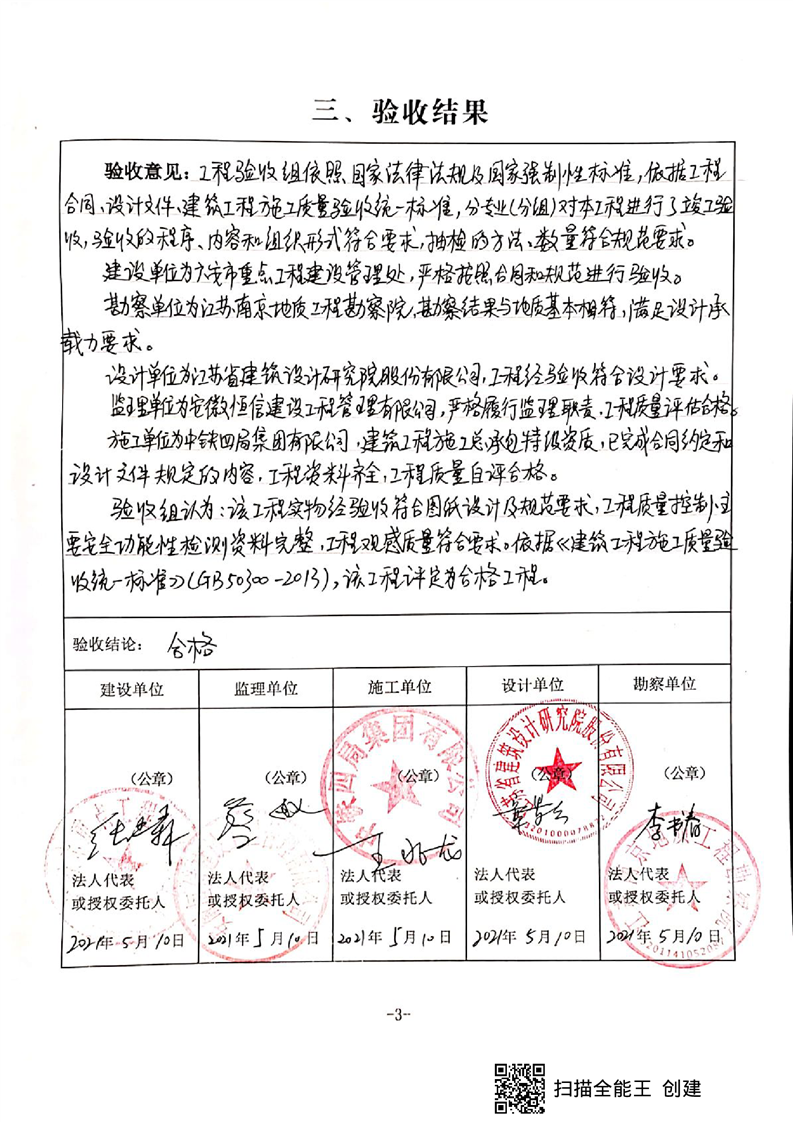 三、验收结果
验收意见：工程验收组依照国家法律法规及国家强制性标准，依据工程
合同、设计文件、建筑工程施工质量验收统一标准，分专业(分组)对本工程进行了竣工验
收，验收的程序、内容和组织形式符合要求，抽检的方法、数量符合规范要求。
建设单位为六安市重点工程建设管理处，严格按照合同和规范进行验收。
勘察单位为江苏南京地质工程勘察院，勘察结果与地质基本相符，满足设计承
载力要求。
设计单位为江苏省建筑设计研究院股份有限公司，工程经验收符合设计要求。
监理单位为安徽恒信建设工程管理有限公司，严格履行监理职责，工程质量评估合格。
施工单位为中铁四局集团有限公司，建筑工程施工总承包特级资质，已完成合同约定和
设计文件规定的内容，工程资料齐全，工程质量自评合格。
验收组认为：该工程实物经验收符合图纸设计及规范要求，工程质量控制主
要安全功能性检测资料完整，工程观感质量符合要求。依据《建筑工程施工质量验
收统一标准》(GB50300-2013)，该工程评定为合格工程。
验收结论： 合格
建设单位 监理单位 施工单位 设计单位 勘察单位
（公章） （公章） （公章） （公章） （公章）
中铁四局集团有限公司
江苏省建筑设计研究院股份有限公司
法人代表 法人代表 法人代表 法人代表 法人代表
或授权委托人 或授权委托人 或授权委托人 或授权委托人 或授权委托人
2021年5月10日 2021年5月10日 2021年5月10日 2021年5月10日 2021年5月10日
-3-
扫描全能王 创建